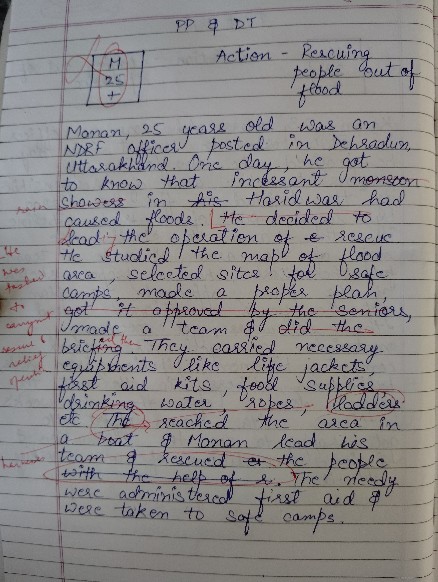 PP & DT
M
25
+
Action - Rescuing
people out of
flood
Manan, 25 years old was an
NDRF officer posted in Dehradun,
Uttarakhand. One day, he got
to know that incessant monsoon
showers in his Haridwar had
rain
caused floods. He decided to
lead the operation of rescue
He
He studied the map of flood
was
area, selected sites for safe
tasked
camps, made a proper plan,
to
got it approved by the seniors,
made a team & did the
rescue &
briefing. They carried necessary
relief
equipments like life jackets,
first aid kits, food supplies
drinking water, ropes, ladders
etc. The reached the area in
a boat & Manan lead his
team & rescued the people
with the help of r. The needy
were administered first aid &
were taken to safe camps.